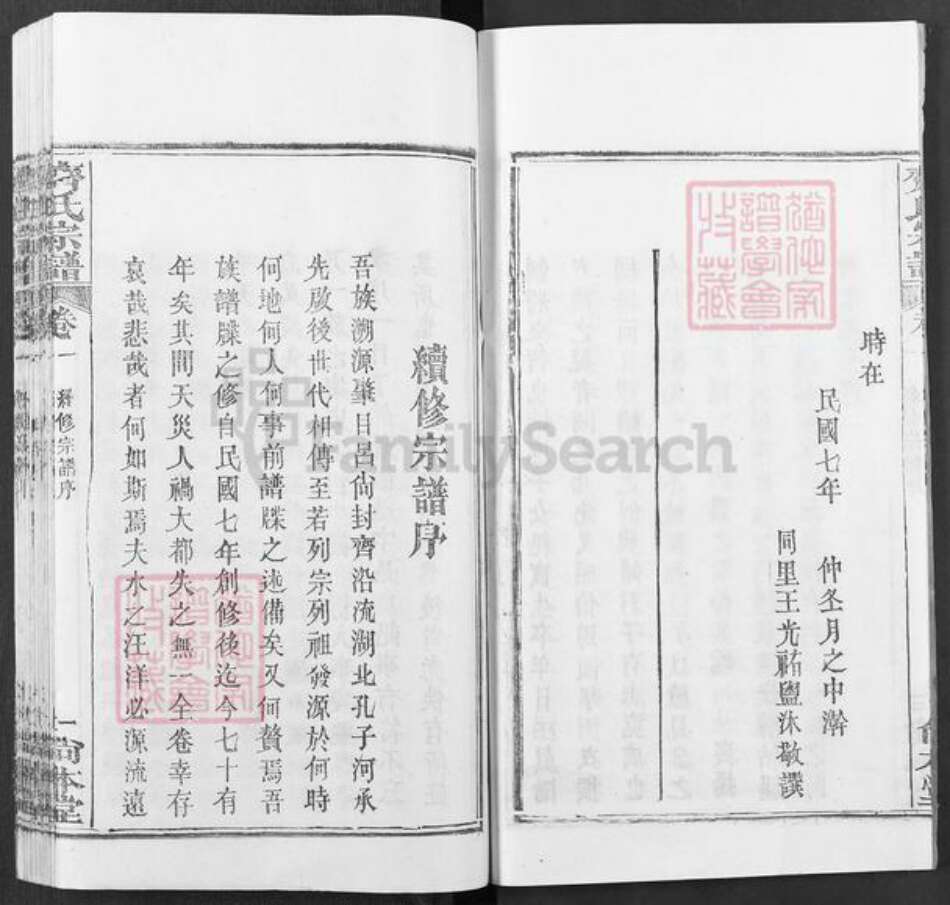 時在
民國七年 仲冬月之中澣
同里王光祐盥沐敬譔
續修宗譜序
吾族溯源肇目呂尙封齊沿流湖北孔子河承
先啟後世代相傳至若列宗列祖發源於何時
何地何人何事前譜牒之述備矣又何贅焉吾
族譜牒之修自民國七年創修後迄今七十有
年矣其間天災人禍大都失之無一全卷幸存
哀哉悲哉者何如斯焉夫水之汪洋必源流遠
齊氏宗譜
卷一
續修宗譜序
一
尙本堂
譜學會
收藏
FamilySearch